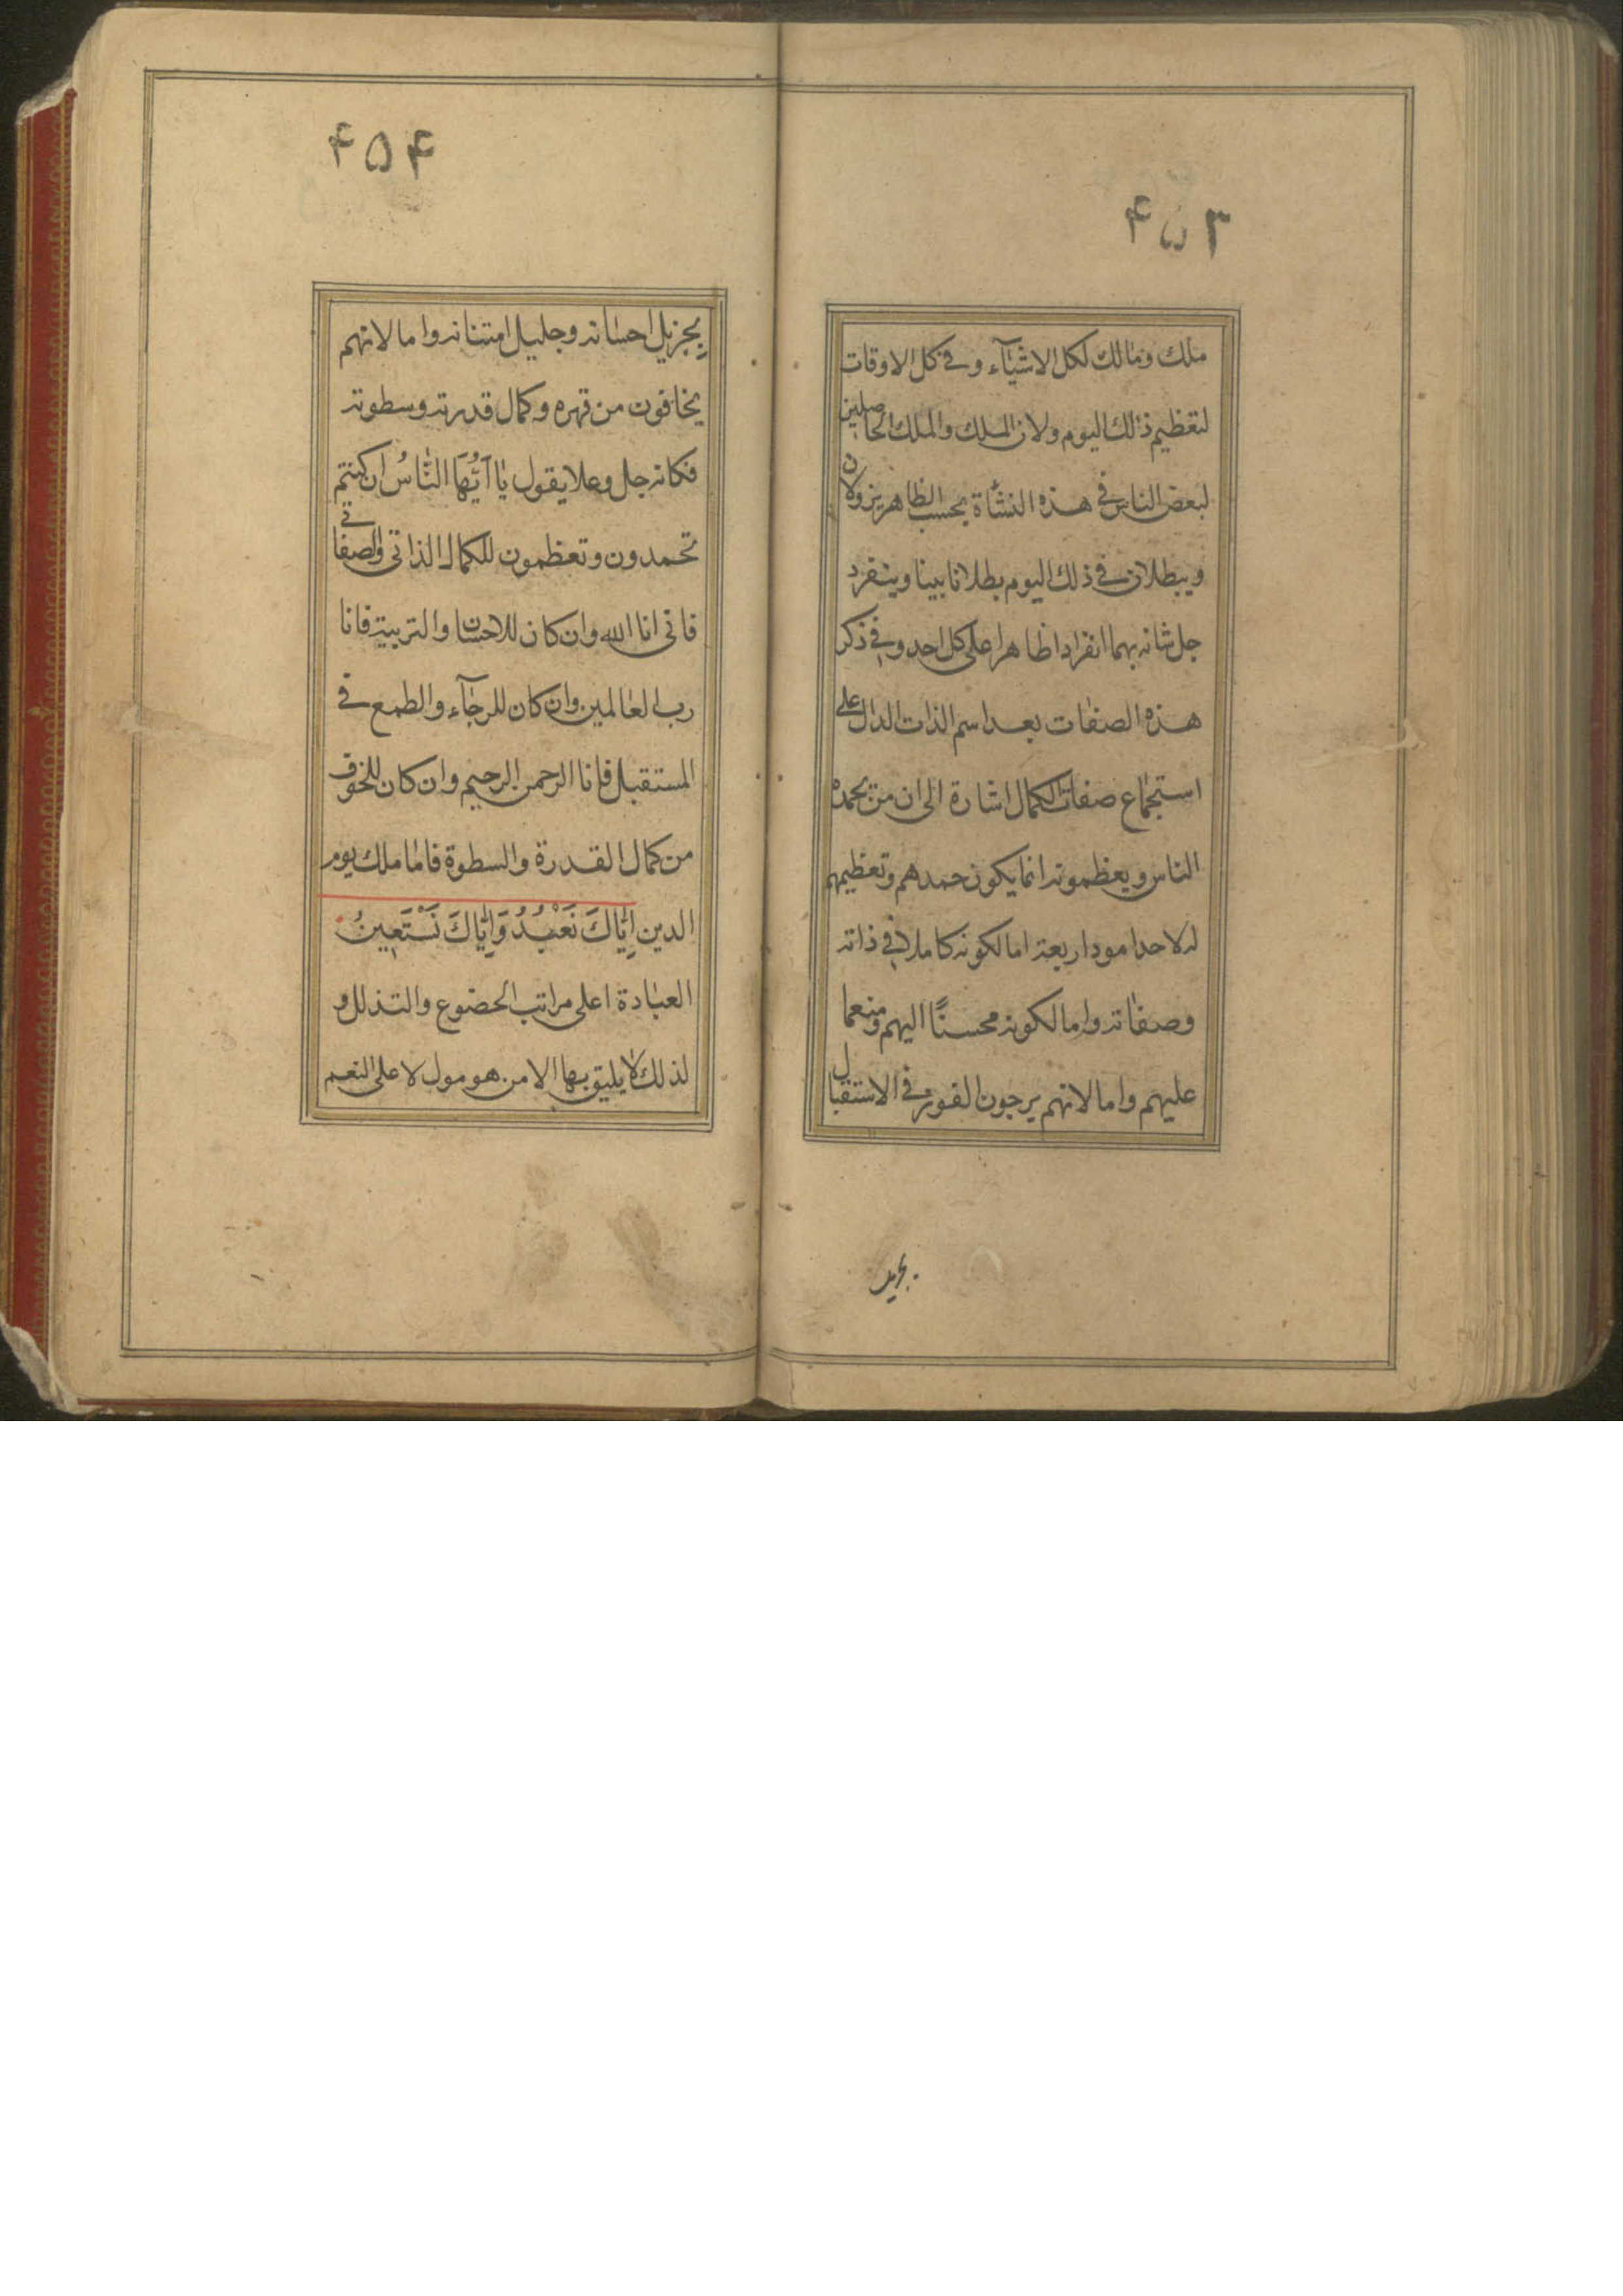 ۴۵۳
ملك ومالك لكل الاشيآء وفي كل الاوقات
لتعظيم ذلك اليوم ولان الملك والملك الحاصلين
لبعض الناس في هذه النشأة بحسب الظاهر يزولان
ويبطلان في ذلك اليوم بطلانا بينا وينفرد
جل شانه بهما انفرادا ظاهرا على كل احد وفي ذكر
هذه الصفات بعد اسم الذات الدال على
استجماع صفات الكمال اشارة الى ان من يحمده
الناس ويعظمونه انما يكون حمدهم وتعظيمهم
له لاحد امور اربعة اما لكونه كاملا في ذاته
وصفاته واما لكونه محسنًا اليهم ومنعما
عليهم واما لانهم يرجون الفوز في الاستقبال
بجزيل
۴۵۴
بجزيل احسانه وجليل امتنانه واما لانهم
يخافون من قهره وكمال قدرته وسطوته
فكانه جل وعلا يقول يا اَيُّهَا النَّاسُ ان كنتم
تحمدون وتعظمون للكمال الذاتي والصفاتي
فاني انا الله وان كان للاحسان والتربية فانا
رب العالمين وان كان للرجآء والطمع في
المستقبل فانا الرحمن الرحيم وان كان للخوف
من كمال القدرة والسطوة فاما ملك يوم
الدين اِيَّاكَ نَعْبُدُ وَاِيَّاكَ نَسْتَعِينُ
العبادة اعلى مراتب الخضوع والتذلل و
لذلك لا يليق بها الا من هو مول لا على النعم